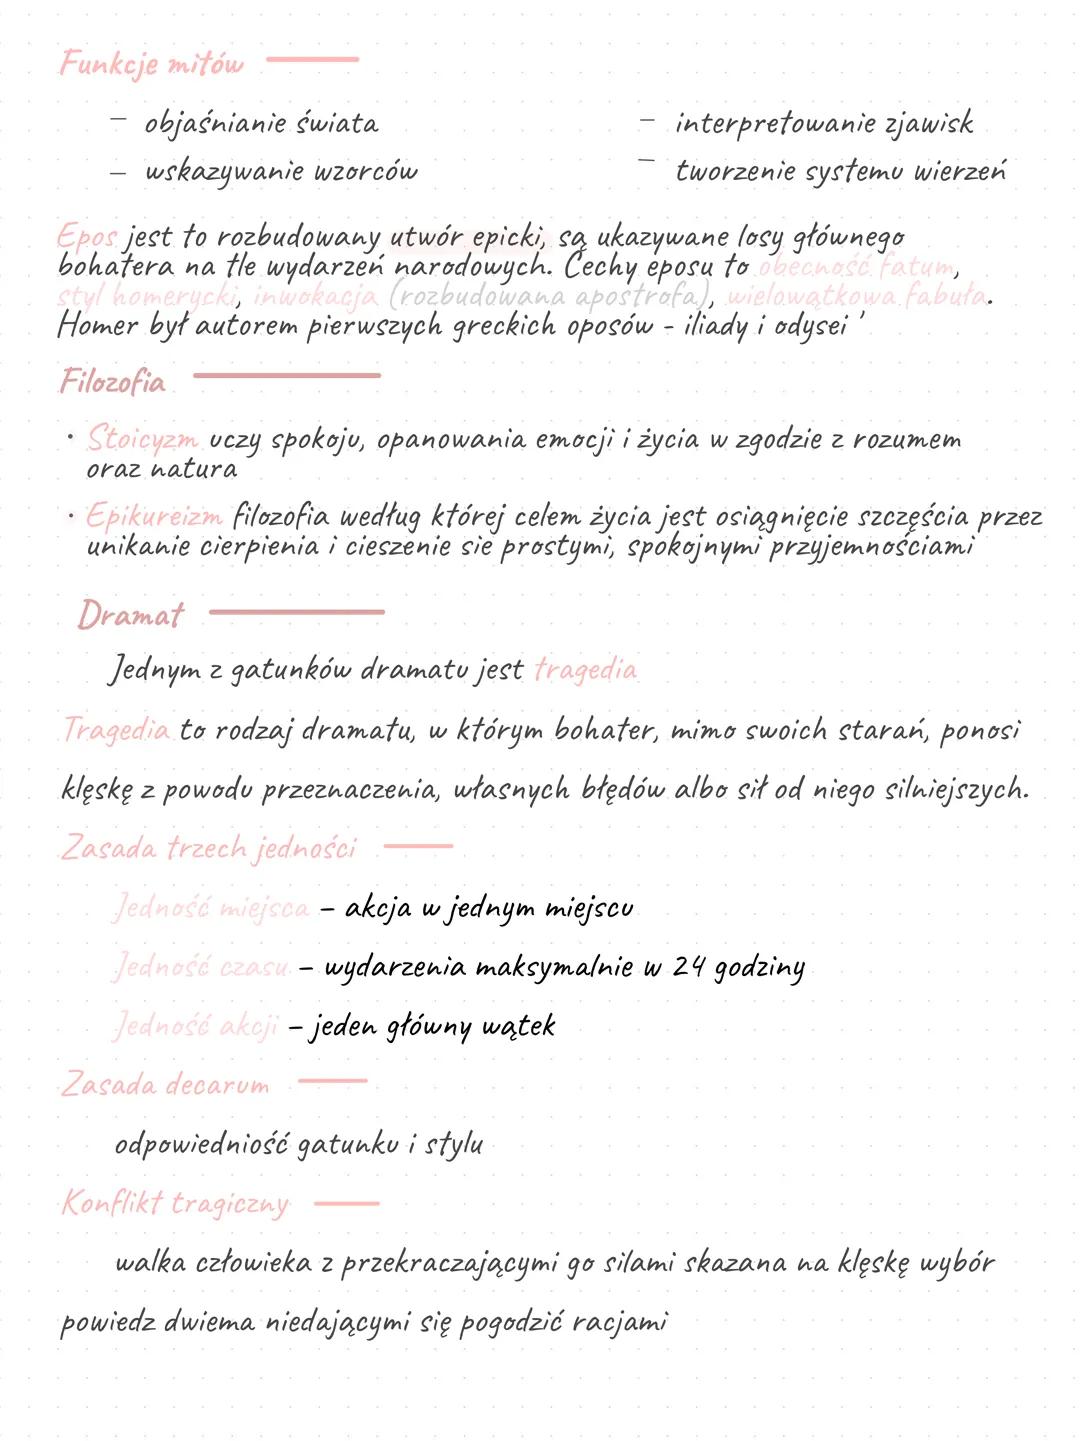 Funkcje mitów
– objaśnianie świata
– interpretowanie zjawisk
– wskazywanie wzorców
– tworzenie systemu wierzeń
Epos jest to rozbudowany utwór epicki, są ukazywane losy głównego
bohatera na tle wydarzeń narodowych. Cechy eposu to obecność fatum,
styl homerycki, inwokacja (rozbudowana apostrofa), wielowątkowa fabuła.
Homer był autorem pierwszych greckich oposów - iliady i odysei '
Filozofia
· Stoicyzm uczy spokoju, opanowania emocji i życia w zgodzie z rozumem
oraz natura
· Epikureizm filozofia według której celem życia jest osiągnięcie szczęścia przez
unikanie cierpienia i cieszenie sie prostymi, spokojnymi przyjemnościami
Dramat
Jednym z gatunków dramatu jest tragedia
Tragedia to rodzaj dramatu, w którym bohater, mimo swoich starań, ponosi
klęskę z powodu przeznaczenia, własnych błędów albo sił od niego silniejszych.
Zasada trzech jedności
Jedność miejsca – akcja w jednym miejscu
Jedność czasu – wydarzenia maksymalnie w 24 godziny
Jedność akcji – jeden główny wątek
Zasada decarum
odpowiedniość gatunku i stylu
Konflikt tragiczny
walka człowieka z przekraczającymi go silami skazana na klęskę wybór
powiedz dwiema niedającymi się pogodzić racjami